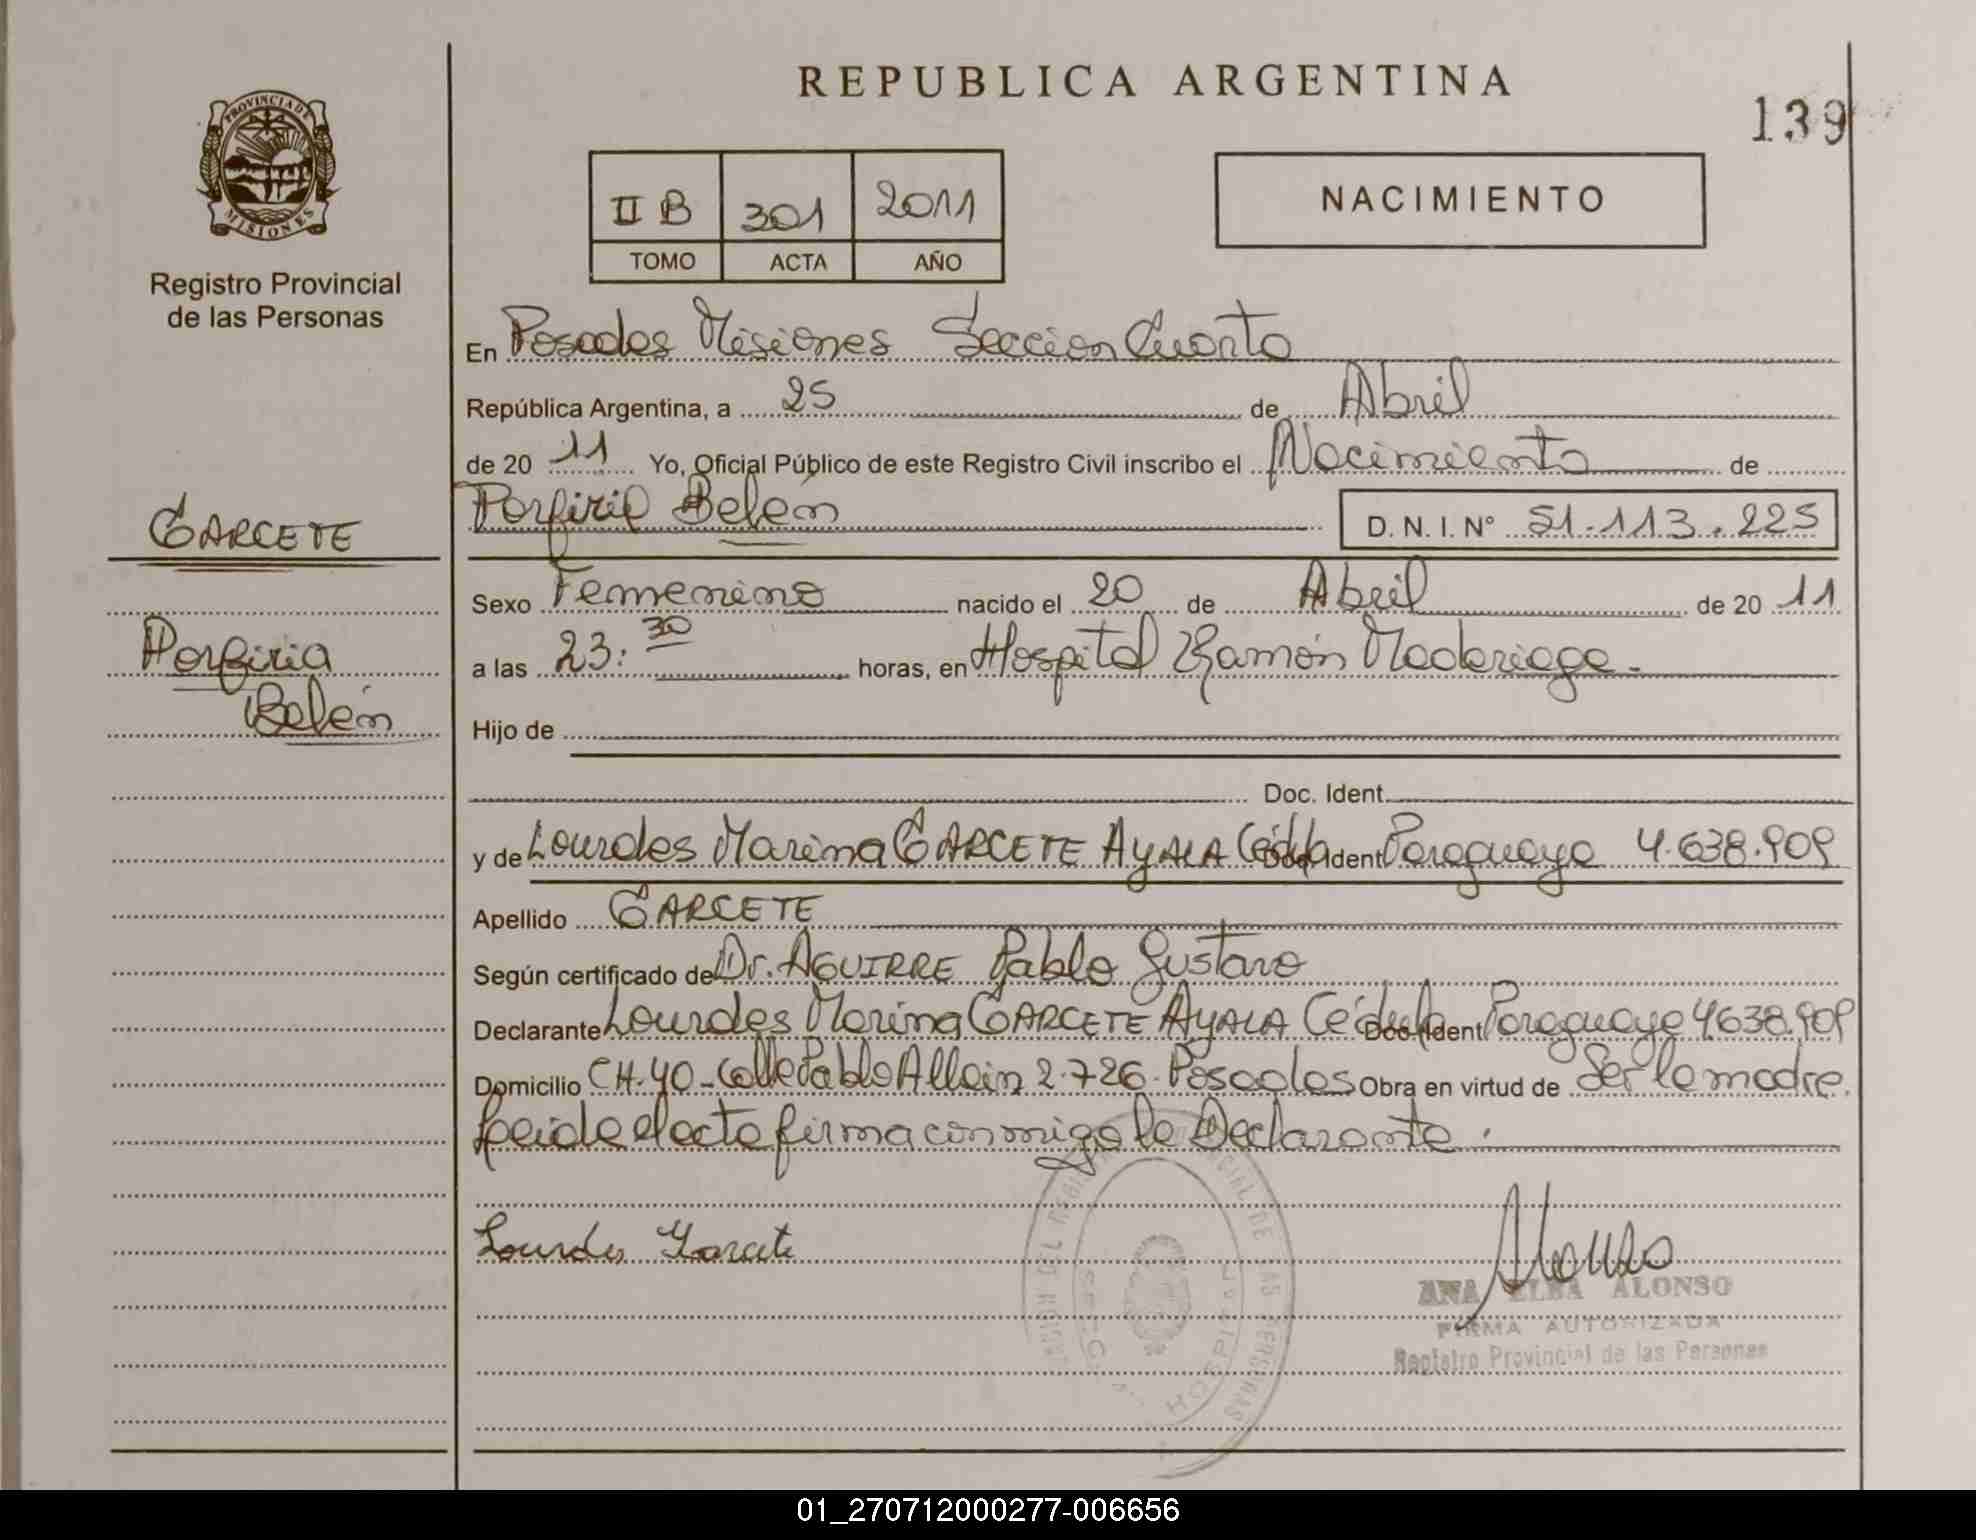 REPUBLICA ARGENTINA
139
PROVINCIA DE
MISIONES
Registro Provincial
de las Personas
II B 301 2011
TOMO ACTA AÑO
NACIMIENTO
En Posadas Misiones Seccion Cuarta
República Argentina, a 25 de Abril
de 20 11 Yo, Oficial Público de este Registro Civil inscribo el Nacimiento de
Porfiria Belén
D. N. I. N° 51.113.225
GARCETE
Porfiria
Belén
Sexo Femenino nacido el 20 de Abril de 20 11
a las 23:30 horas, en Hospital Ramón Madariaga.
Hijo de
Doc. Ident.
y de Lourdes Marina GARCETE AYALA Cédula Doc. Ident Paraguaya 4.638.909
Apellido GARCETE
Según certificado de Dr. AGUIRRE Pablo Gustavo
Declarante Lourdes Marina GARCETE AYALA Cédula Doc. Ident Paraguaya 4638.909
Domicilio CH. 40 - Calle Pablo Allain 2.726. Posadas Obra en virtud de Ser la madre.
Leida el acta firma conmigo la Declarante.
Lourdes
Alonso
ANA ELBA ALONSO
FIRMA AUTORIZADA
Registro Provincial de las Personas
DE LAS PERSONAS
01_270712000277-006656